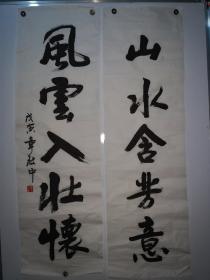 山水含芳意
風雲入壯懷
戊寅